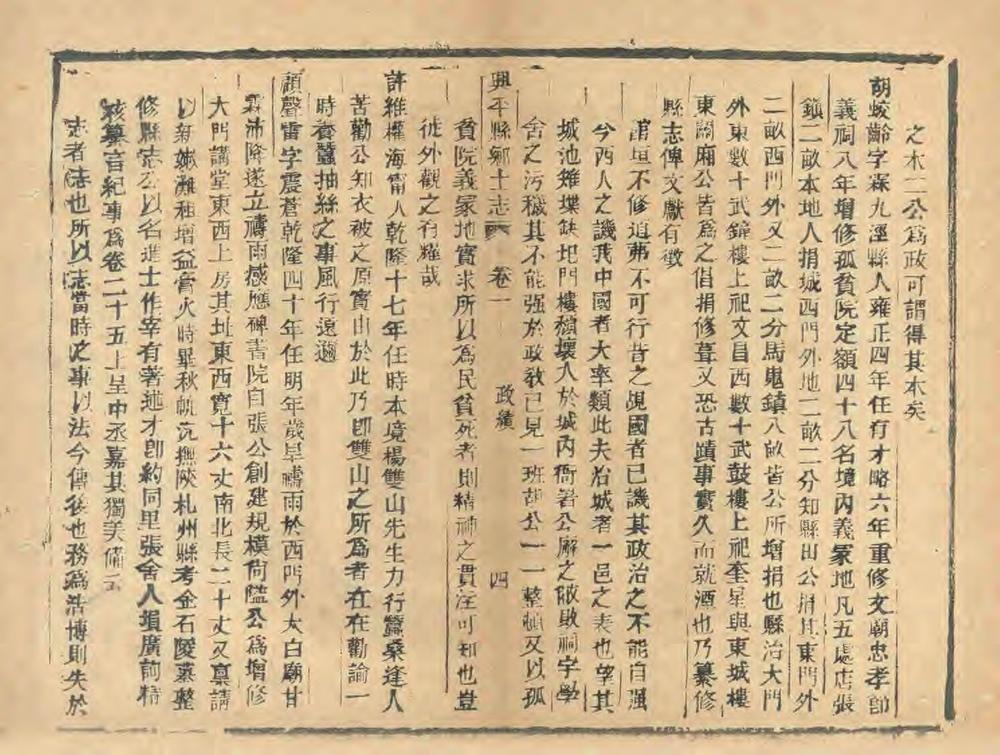 之木二公爲政可謂得其本矣
胡蛟齡字霖九涇縣人雍正四年任有才略六年重修文廟忠孝節
義祠八年增修孤貧院定額四十八名境內義冢地凡五處店張
鎮二畝本地人捐城西門外地二畝二分知縣田公捐其東門外
二畝西門外又二畝二分馬嵬鎮八畝皆公所增捐也縣治大門
外東數十武鐘樓上祀文昌西數十武鼓樓上祀奎星與東城樓
東關廂公皆爲之倡捐修葺又恐古蹟事實久而就湮也乃纂修
縣志俾文獻有徵
館垣不修道茀不可行昔之覘國者已譏其政治之不能自强
今西人之譏我中國者大率類此夫治城者一邑之表也望其
城池雉堞缺圮門樓積壞入於城內衙署公廨之敝敗祠宇學
舍之污穢其不能强於政敎已見一班胡公一一整頓又以孤
興平縣鄉土志 卷一 政績 四
貧院義冢地實求所以爲民貧死者則精神之貫注可知也豈
徒外觀之有耀哉
許維權海甯人乾隆十七年任時本境楊雙山先生力行蠶桑逢人
苦勸公知衣被之原實由於此乃卽雙山之所爲者在在勸諭一
時養蠶抽絲之事風行遠邇
顧聲雷字震蒼乾隆四十年任明年歲旱禱雨於西門外太白廟甘
霖沛降遂立禱雨感應碑書院自張公創建規模尙隘公爲增修
大門講堂東西上房其址東西寬十六丈南北長二十丈又稟請
以新嫩灘租增益膏火時畢秋帆沅撫陝札州縣考金石陵墓整
修縣志公以名進士作宰有著述才卽約同里張舍人塤廣詢精
核纂言紀事爲卷二十五上呈中丞嘉其獨美備云
志者誌也所以誌當時之事以法今傳後也務爲浩博則失於